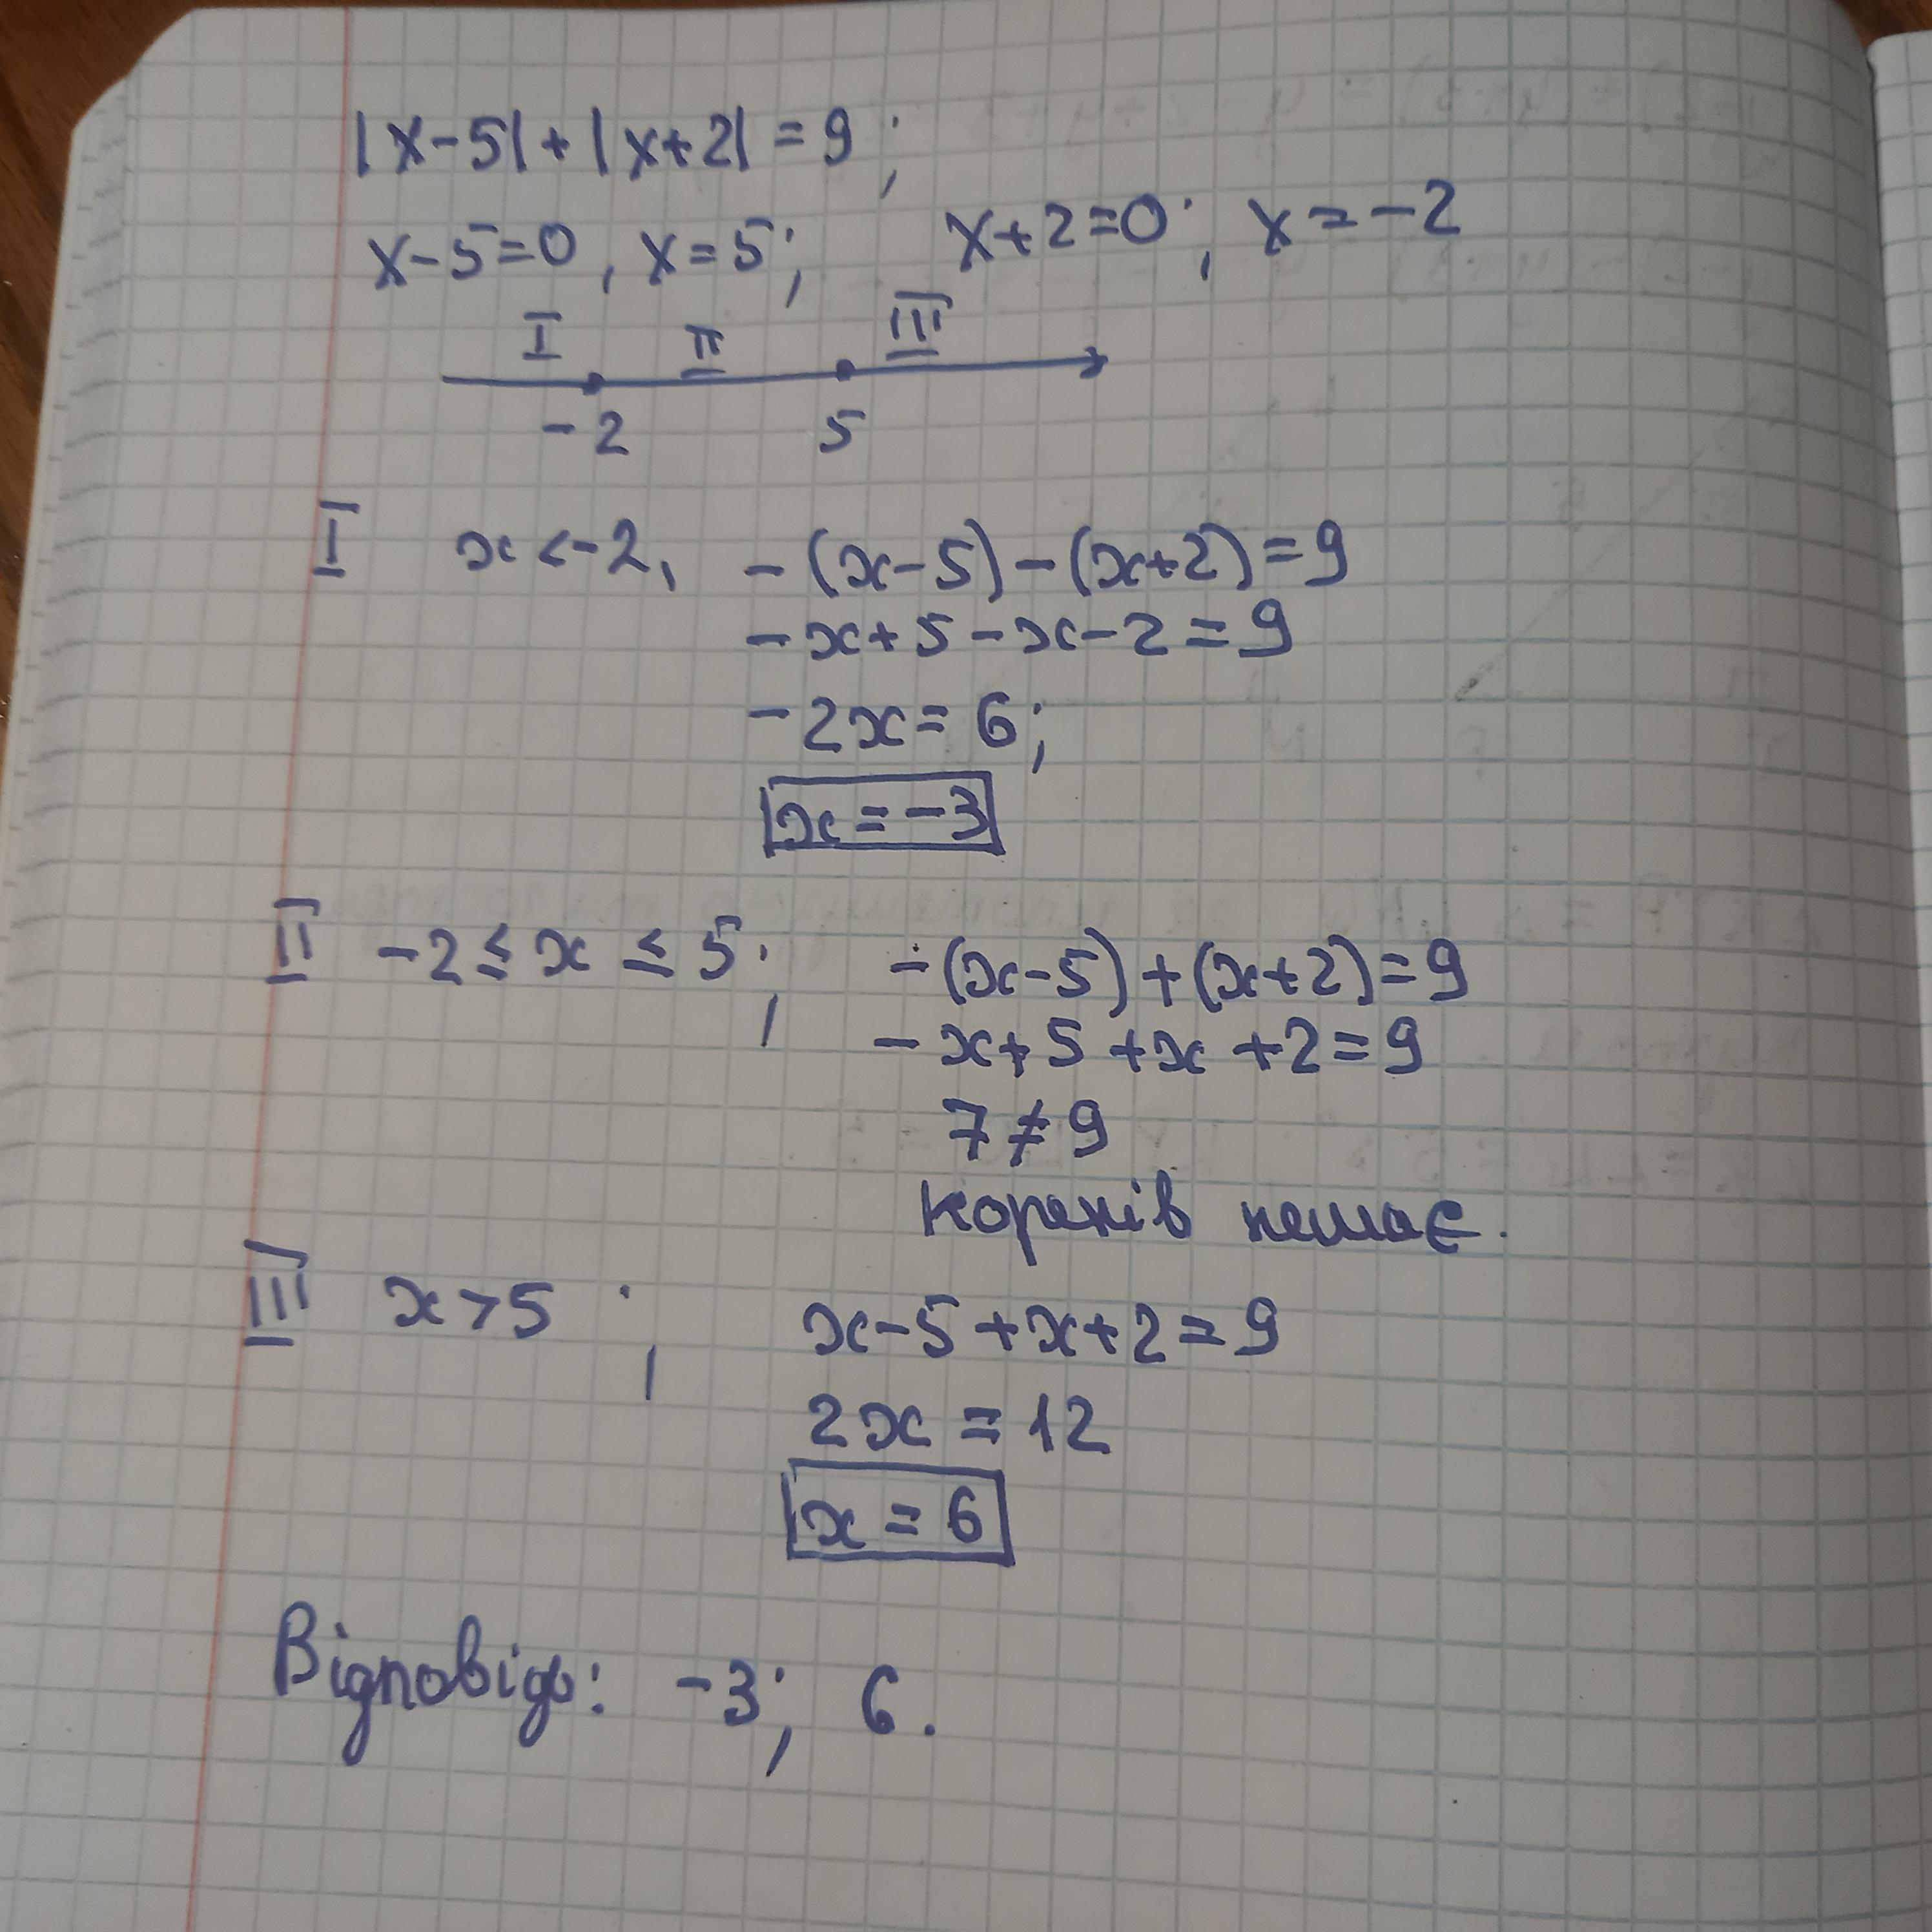 |x-5|+|x+2|=9;
x-5=0, x=5; x+2=0; x=-2
I II III
-2 5
I x<-2, -(x-5)-(x+2)=9
-x+5-x-2=9
-2x=6;
x=-3
II -2≤x≤5; -(x-5)+(x+2)=9
-x+5+x+2=9
7≠9
коренів немає.
III x>5; x-5+x+2=9
2x=12
x=6
Відповідь: -3; 6.